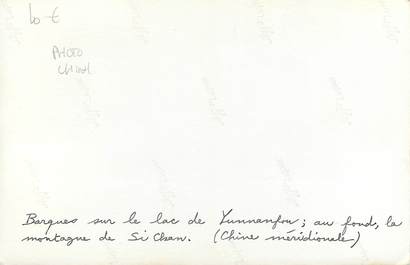 10 €
PHOTO
Barques sur le lac de Yunnanfou ; au fond, la
montagne de Si Chan. (Chine méridionale)